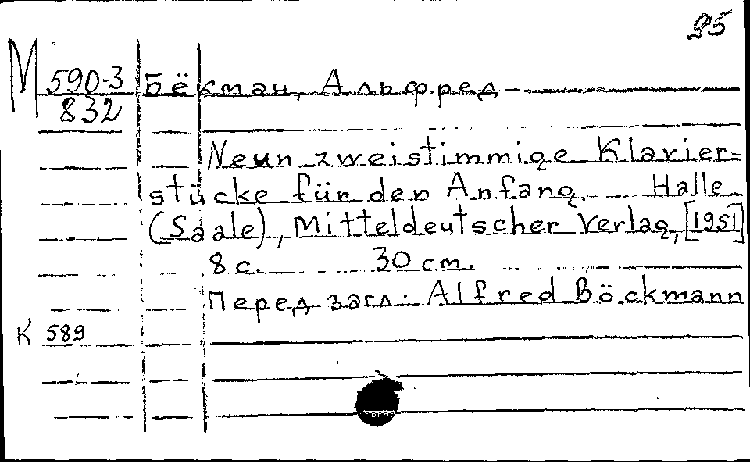 95
М 590-3
832
Бёкман, Альфред
Neun zweistimmige Klavier=
stücke für den Anfang. Halle
(Saale), Mitteldeutscher Verlag, [1951]
8 с. 30 см.
Перед загл.: Alfred Böckmann
К 589